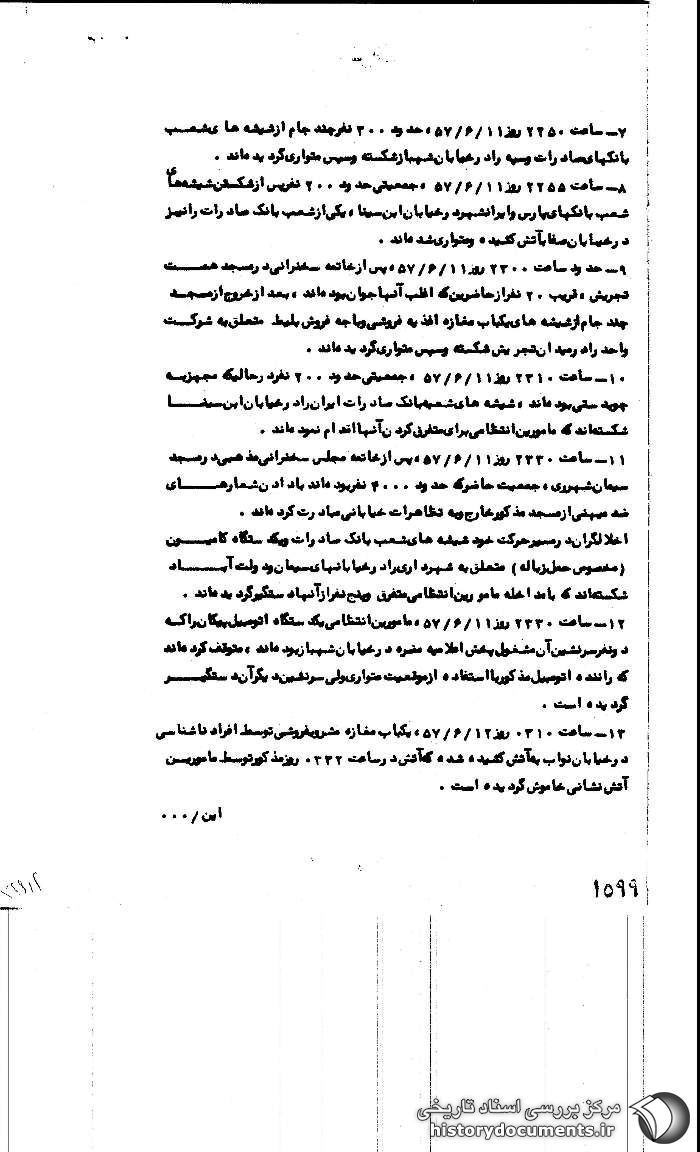 ۷ـ ساعت ۲۲۵۰ روز ۵۷/۶/۱۱، حدود ۳۰۰ نفر چند جام از شیشه های شعب
بانکهای صادرات و سپه را در خیابان شهباز شکسته و سپس متواری گردیده‌اند .
۸ـ ساعت ۲۲۵۵ روز ۵۷/۶/۱۱، جمعیتی حدود ۲۰۰ نفر پس از شکستن شیشه‌های
شعب بانکهای پارس و ایرانشهر در خیابان ابن سینا، یکی از شعب بانک صادرات را نیز
در خیابان صفا به آتش کشیده و متواری شده‌اند .
۹ـ حدود ساعت ۲۳۰۰ روز ۵۷/۶/۱۱، پس از خاتمه سخنرانی در مسجد همت
تجریش، قریب ۲۰ نفر از حاضرین که اغلب آنها جوان بوده‌اند، بعد از خروج از مسجد
چند جام از شیشه های یکباب مغازه اغذیه فروشی و باجه فروش بلیط متعلق به شرکت
واحد را در میدان تجریش شکسته و سپس متواری گردیده‌اند .
۱۰ـ ساعت ۲۳۱۰ روز ۵۷/۶/۱۱، جمعیتی حدود ۲۰۰ نفر در حالیکه مجهز به
چوبدستی بوده‌اند، شیشه های شعبه بانک صادرات ایران را در خیابان ابن سینا
شکسته‌اند که مامورین انتظامی برای متفرق کردن آنها اقدام نموده‌اند .
۱۱ـ ساعت ۲۳۳۰ روز ۵۷/۶/۱۱، پس از خاتمه مجلس سخنرانی مذهبی در مسجد
سیمان شهرری، جمعیت حاضر که حدود ۴۰۰۰ نفر بوده‌اند با دادن شعارهای
ضد میهنی از مسجد مذکور خارج و به تظاهرات خیابانی مبادرت کرده‌اند .
اخلالگران در مسیر حرکت خود شیشه های شعب بانک صادرات و یکدستگاه کامیون
(مخصوص حمل زباله) متعلق به شهرداری را در خیابانهای سیمان و دولت آباد
شکسته‌اند که با مداخله مامورین انتظامی متفرق و پنج نفر از آنها دستگیر گردیده‌اند .
۱۲ـ ساعت ۲۳۳۰ روز ۵۷/۶/۱۱، مامورین انتظامی یکدستگاه اتومبیل پیکان را که
دو نفر سرنشین آن مشغول پخش اعلامیه مضره در خیابان شهباز بوده‌اند، متوقف کرده‌اند
که راننده اتومبیل مذکور با استفاده از موقعیت متواری ولی سرنشین دیگر آن دستگیر
گردیده است .
۱۳ـ ساعت ۰۳۱۰ روز ۵۷/۶/۱۲، یکباب مغازه مشروبفروشی توسط افراد ناشناسی
در خیابان نواب به آتش کشیده شده که آتش در ساعت ۰۳۳۲ روز مذکور توسط مامورین
آتش نشانی خاموش گردیده است .
این/۰۰۰
۱۵۹۹
مرکز بررسی اسناد تاریخی
historydocuments.ir